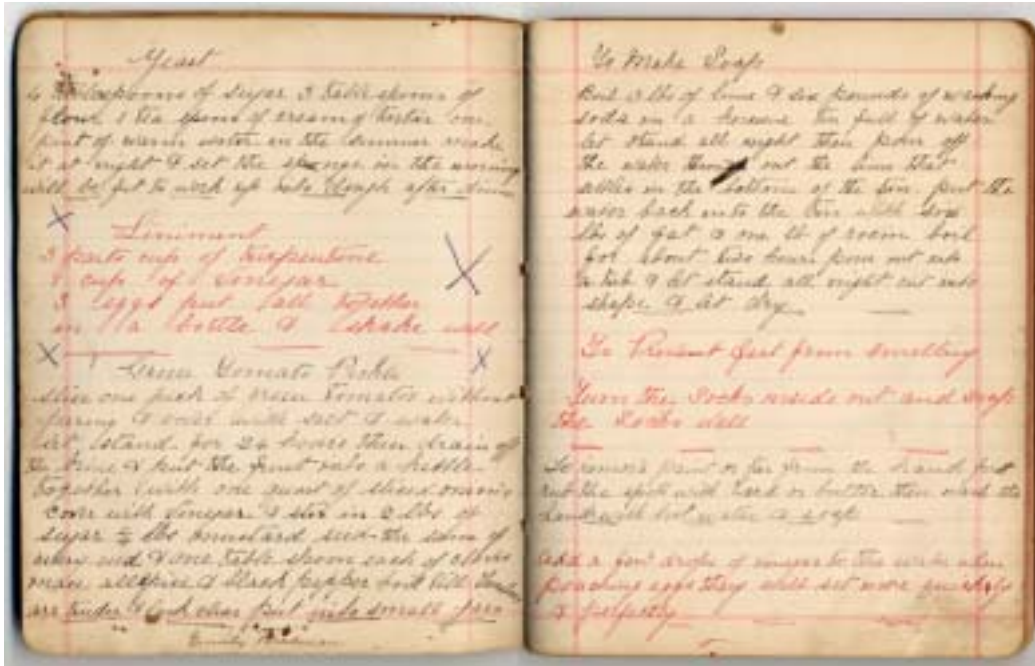 Yeast
of sugar 3 table spoons of
flour 1 tea spoon of cream of tartar one
pint of warm water in the summer make
it at night & set the sponge in the morning
will be fit to work up into dough after
Liniment
3 parts cup of turpentine
1 cup of vinegar
3 eggs put all together
in a bottle & shake well
Green Tomato Pickle
slice one peck of green tomatos without
paring & cover with salt & water
let stand for 24 hours then drain off
the brine & put the fruit into a kettle
together with one quart of sliced onions
cover with vinegar & stir in 2 lbs of
sugar ½ lbs mustard seed the same of
seed & one table spoon each of cloves
mace allspice & black pepper boil till
are tender & look clear put into small jars
To Make Soap
Boil 3 lbs of lime & six pounds of washing
soda in a tin full of water
let stand all night then pour off
the water out the lime that
settles in the bottom of the tin put the
water back into the tin with six
lbs of fat & one lb of boil
for about two hours pour out into
a tub & let stand all night cut into
shape & let dry
To Prevent feet from smelling
Turn the Socks inside out and soap
the Socks well
To remove paint or tar from the hands first
rub the spots with lard or butter then wash the
hands with hot water & soap
add a few drops of vinegar to the water when
poaching eggs they will set more quickly
& perfectly